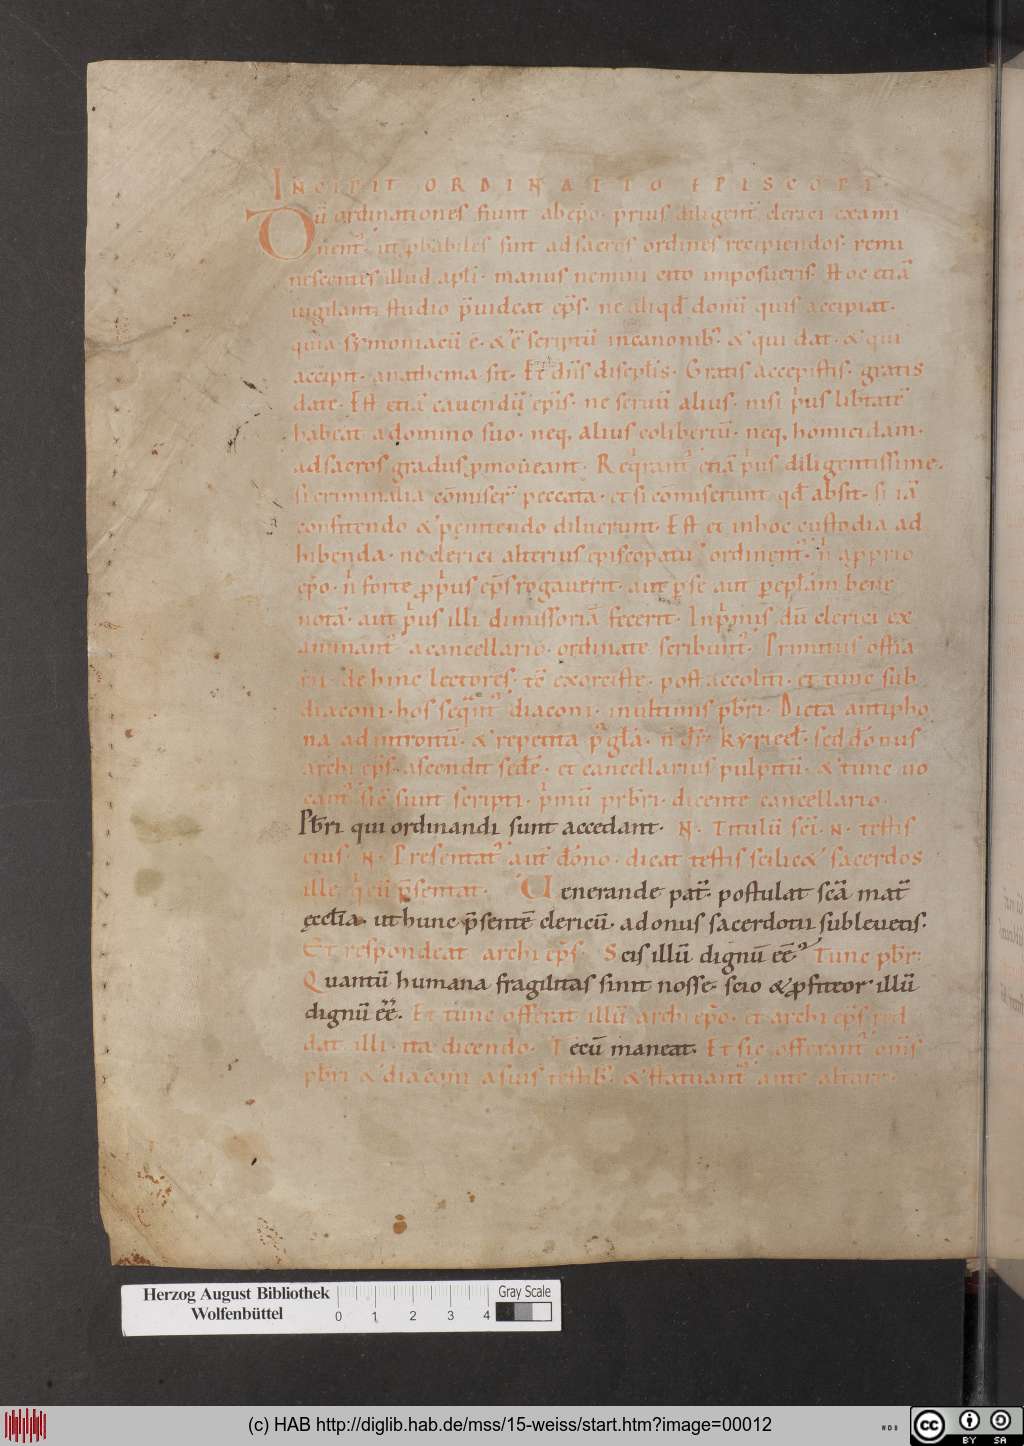 INCIPIT ORDINATIO EPISCOPI.
Dū ordinationes fiunt ab ep̄o. prius diligent̄ clerici exami
nent᷒. ut p̱babiles sint ad sacros ordines recipiendos. remi
niscentes illud apl̄i. manus nemini cito imposueris. Hoc etiā
uigilanti studio p̄uideat ep̄s. ne aliqd̄ donū quis accipiat.
quia symoniacū ē. & ē scriptū in canonib᷒. & qui dat. & qui
accipit. anathema sit. Et dn̄s discipl̄is. Gratis accepistis. gratis
date. Est etiā cauendū ep̄is. ne seruū alius. nisi pͥus lib̄tatē
habeat a domino suo. neq, alius colibertū. neq, homicidam.
ad sacros gradus p̱moueant. Reqͥrant᷒ etiā pͥus diligentissime.
si criminalia cōmiser̄ peccata. et si cōmiserunt qd̄ absit. si iā
confitendo & penitendo diluerunt. Est et in hoc custodia ad
hibenda. ne clerici alterius episcopatus ordinent᷒. nͥ a p̱prio
ep̄o. nͥ forte p̱pͥus ep̄s rogauerit. aut p̱ se aut p̱ epl̄am bene
notā. aut pͥus illi dimissoriā fecerit. In pͥmis dū clerici ex
aminant᷒ a cancellario. ordinate scribunt᷒. Primitus ostia
rii. dehinc lectores. tc̄ exorcistę. post accoliti. et tunc sub
diaconi. hos seqͣnt᷒ diaconi. in ultimis pb̄ri. Dicta antipho
na ad introitū. & repetita pͣ gl̄a. n̄ dr̄. kyriecl̄. sed dōnus
archi ep̄s. ascendit sedē. et cancellarius pulpitū. & tunc uo
cant᷒ sic̄ sunt scripti. pͥmū prb̄ri. dicente cancellario.
Pb̄ri qui ordinandi sunt accedant. N̄. Titulū sc̄i. N̄. testis
eius. N̄. Presentat᷒ aut̄ dōno. dicat testis scilic& sacerdos
ille qͥ cū p̄sentat. Uenerande pat̄. postulat sc̄a mat̄
ęccl̄ia ut hunc p̄sentē clericū. ad onus sacerdotii subleuetis.
Et respondeat archi ep̄s. Scis illū dignū ēē? Tunc pb̄r:
Quantū humana fragilitas sinit nosse. scio & p̱fiteor illū
dignū ēē. Et tunc offerat illū archi ep̄o. et archi ep̄s red
dat illi. ita dicendo. Tecū maneat. Et sic offerant᷒ om̄s
pb̄ri & diaconi a suis testib᷒. & statuant᷒ ante altare.
Herzog August Bibliothek
Wolfenbüttel
0 1 2 3 4
Gray Scale
(c) HAB http://diglib.hab.de/mss/15-weiss/start.htm?image=00012
WDB
CC BY SA